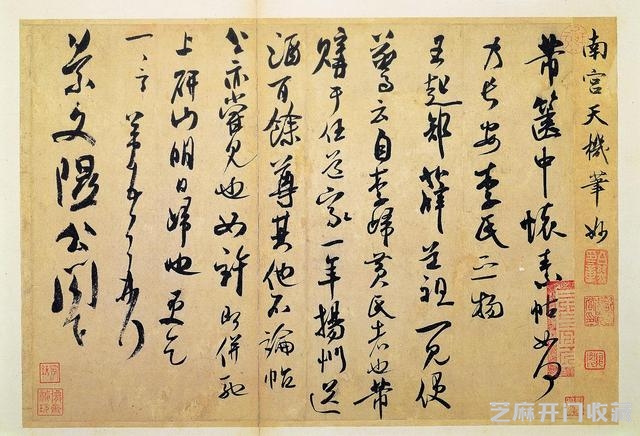 南宮天機筆妙
芾篋中懷素帖如何
乃長安李氏之物
王起部薛道祖一見便
驚云自李歸黃氏者也芾
購于任道家一年揚州送
酒百餘尊其他不論帖
公亦嘗見也如許即併馳
上研山明日歸也更乞
一言芾頓首再拜
景文隰公閣下
芝麻开门收藏